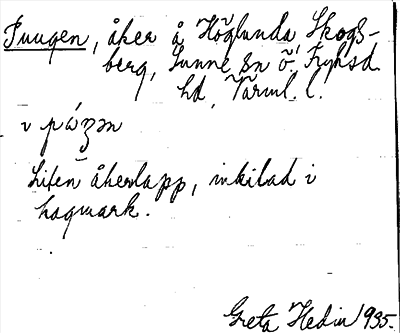 åker å Höglunda Skogs-
berg, Sunne sn ö. Fryksd.
hd, Värml. l.
Liten åkerlapp, inkilad i
hagmark.
Greta Hedin 1935.